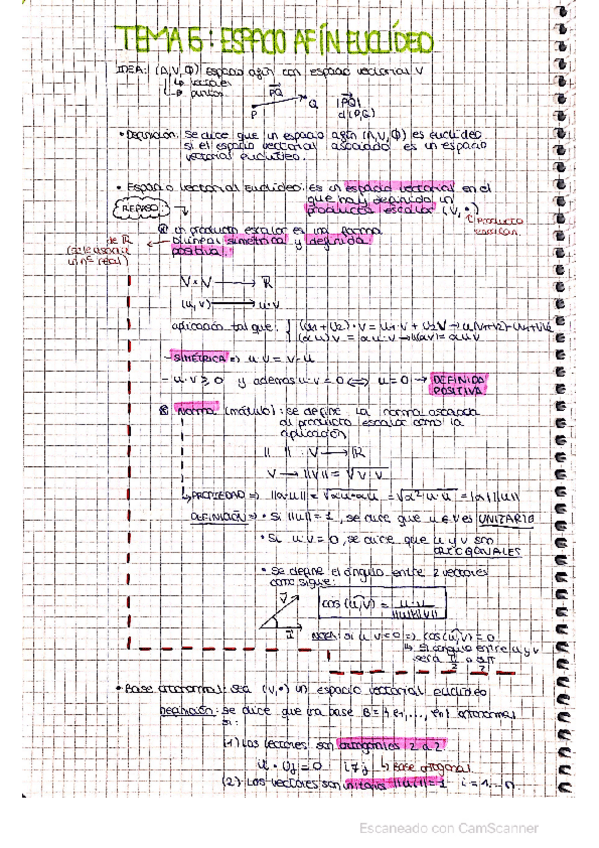 TEMA 5: ESPACIO AFÍN EUCLÍDEO
IDEA: (A,V,Φ) espacio afín con espacio vectorial V
↳ vectores
↳ puntos
PQ
P Q |PQ|
d(P,Q)
• Definición: se dice que un espacio afín (A,V,Φ) es euclídeo
si el espacio vectorial asociado es un espacio
vectorial euclídeo.
• Espacio vectorial Euclídeo: es un espacio vectorial en el
que hay definido un
producto escalar (V,•)
REPASO:
↳ Producto
escalar.
un producto escalar es una forma
bilineal simétrica y definida
positiva.
de ℝ
un nº real)
V×V → ℝ
(u,v) → u·v
aplicación tal que: { (u1+u2)·v = u1·v + u2·v → u(v1+v2)=u·v1+u·v2
(αu)v = α u·v → u(αv) = α u·v
- SIMÉTRICA ⇒ u·v = v·u
- u·v ≥ 0 y además u·v = 0 ⟺ u = 0 → DEFINIDA
POSITIVA
Norma (módulo): se define la norma asociada
al producto escalar como la
aplicación
‖ ‖ : V → ℝ
V → ‖V‖ = √V·V
↳ PROPIEDAD ⇒ ‖α·u‖ = √αu·αu = √α² u·u = |α|‖u‖
DEFINICIÓN ⇒ • Si ‖u‖ = 1, se dice que u∈V es UNITARIO
• Si u·v = 0, se dice que u y v son
ORTOGONALES
• Se define el ángulo entre 2 vectores
como sigue:
V
cos(u,v) = u·v / ‖u‖‖v‖
u
NOTA: si u·v = 0 ⇒ cos(u,v) = 0
↳ El ángulo entre u y v
será π/2 o 3π/2
• Base ortonormal: Sea (V,•) un espacio vectorial euclídeo
Definición: se dice que una base B = {e1,...,en} ortonormal
si:
(1) Los vectores son ortogonales 2 a 2.
ui · uj = 0 i≠j ↳ Base ortogonal.
(2) Los vectores son unitarios ‖ui‖ = 1 i = 1,...n
Escaneado con CamScanner